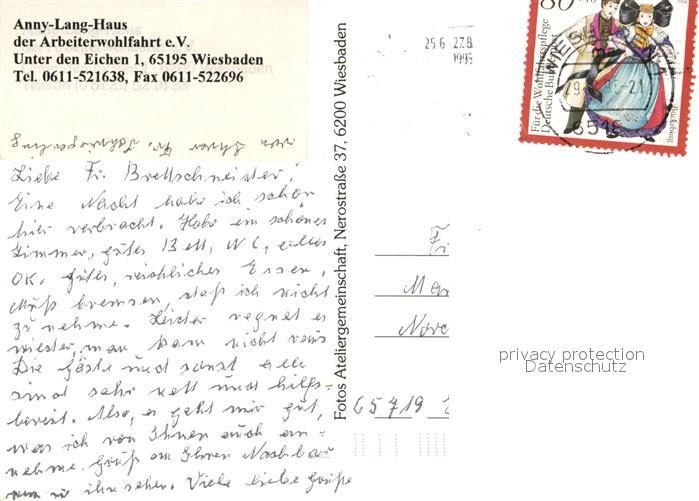 Anny-Lang-Haus
der Arbeiterwohlfahrt e.V.
Unter den Eichen 1, 65195 Wiesbaden
Tel. 0611-521638, Fax 0611-522696
von Ihrer Fr.
Liebe Fr. Brettschneider!
Eine Nacht habe ich schon
hier verbracht. Habe ein schönes
Zimmer, gutes Bett, WC, alles
OK. Gutes, reichliches Essen,
muß bremsen, daß ich nicht
zu nehme. Leider regnet es
wieder, man kann nicht raus
Die Gäste und sonst alle
sind sehr nett und hilfs-
bereit. Also, es geht mir gut,
was ich von Ihnen auch an-
nehme. Gruß an Ihren Nachbar
wenn Sie ihn sehen. Viele liebe Grüße
Fotos Ateliergemeinschaft, Nerostraße 37, 6200 Wiesbaden
25.6 - 27.8
1995
80
Für die Wohlfahrtspflege
Deutsche Bundespost
Bückeburg
Fr
65719
privacy protection
Datenschutz